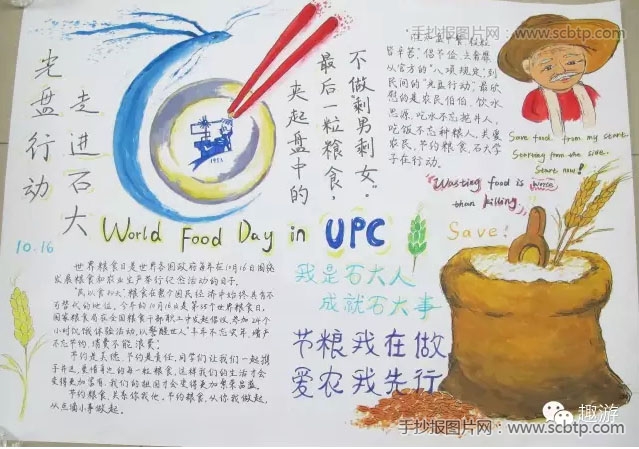 手抄报图片网：www.scbtp.com
光盘行动
走进石大
不做剩男剩女"，
最后一粒粮食，
夹起盘中的
1953
皆辛苦。"倡不俭，
从官方的"八项规定"，到
民间的"光盘行动"，最欣
慰的是农民伯伯，饮水
思源，吃水不忘挖井人，
吃饭不忘种粮人，关爱
农民，节约粮食，石大学
子在行动。
Save food from my start.
Starting from the side.
Start now!
"Wasting food is
than killing"
Save!
World Food Day in UPC
10.16
我是石大人
成就石大事
节粮我在做
爱农我先行
世界粮食日是世界各国政府每年在10月16日围绕
发展粮食和农业生产举行纪念活动的日子。
"民以食为天"，粮食在整个国民经济中始终具有不
可替代的地位，今年的10月16日是第35个世界粮食日。
国家粮食局在全国粮食干部职工中发起倡议，参加24个
小时饥饿体验活动，以警醒世人"丰年不忘灾年，增产
不忘节约，消费不能浪费"。
节约是美德，节约是责任，同学们让我们一起携
手并进，爱惜身边的每一粒粮食，这样我们的生活才会
变得更加富有，我们的祖国才会变得更加繁荣昌盛。
节约粮食，关系你我他。节约粮食，从你我做起，
从点滴小事做起。
趣游
手抄报图片网：www.scbtp.com